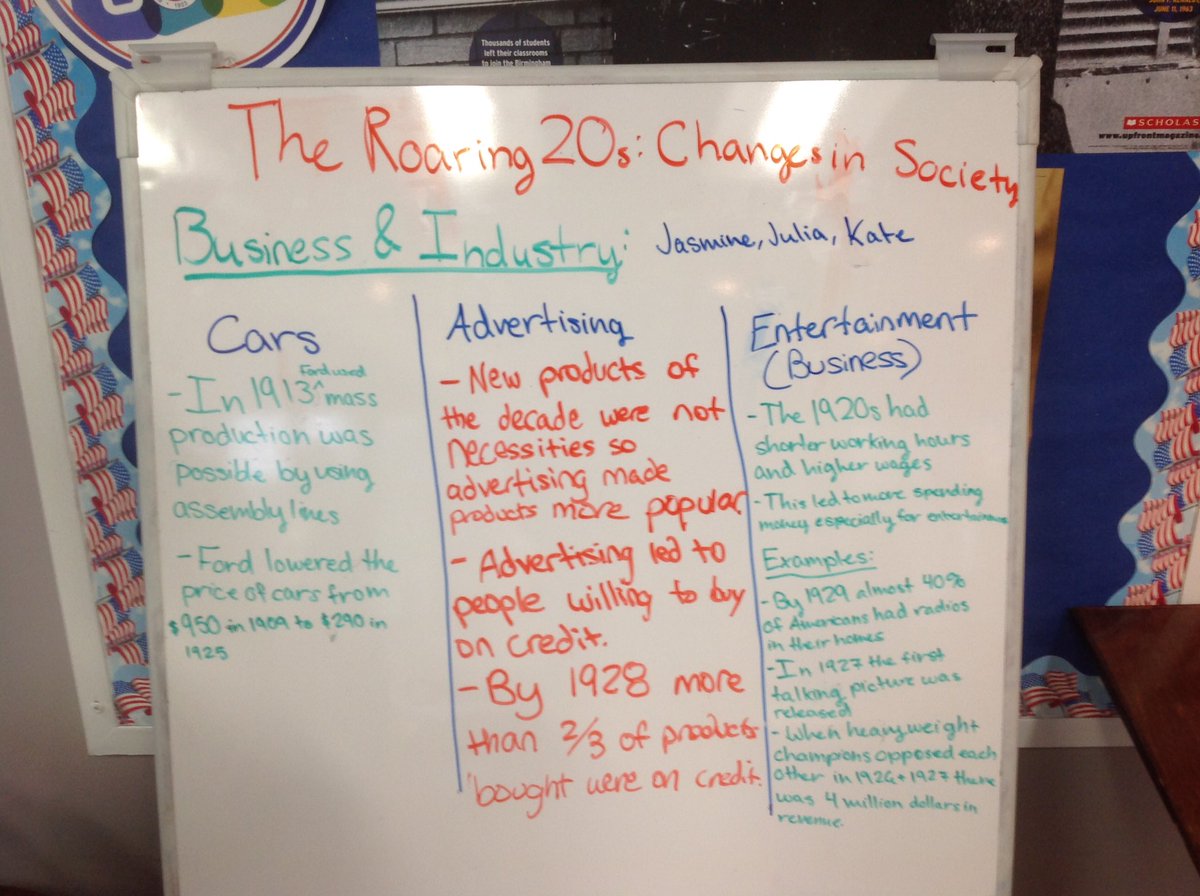 1953
Thousands of students
left their classrooms
to join the Birmingham
JUNE 11, 1963
SCHOLAS
www.upfrontmagazine
The Roaring 20s: Changes in Society
Business & Industry:
Jasmine, Julia, Kate
Cars
Ford used
- In 1913 ^ mass
production was
possible by using
assembly lines
- Ford lowered the
price of cars from
$950 in 1909 to $290 in
1925
Advertising
- New products of
the decade were not
necessities so
advertising made
products more popular
- Advertising led to
people willing to buy
on credit.
- By 1928 more
than 2/3 of products
bought were on credit.
Entertainment
(Business)
- The 1920s had
shorter working hours
and higher wages
- This led to more spending
money especially for entertainment
Examples:
- By 1929 almost 40%
of Americans had radios
in their homes
- In 1927 the first
talking picture was
released
- When heavyweight
champions opposed each
other in 1926 + 1927 there
was 4 million dollars in
revenue.